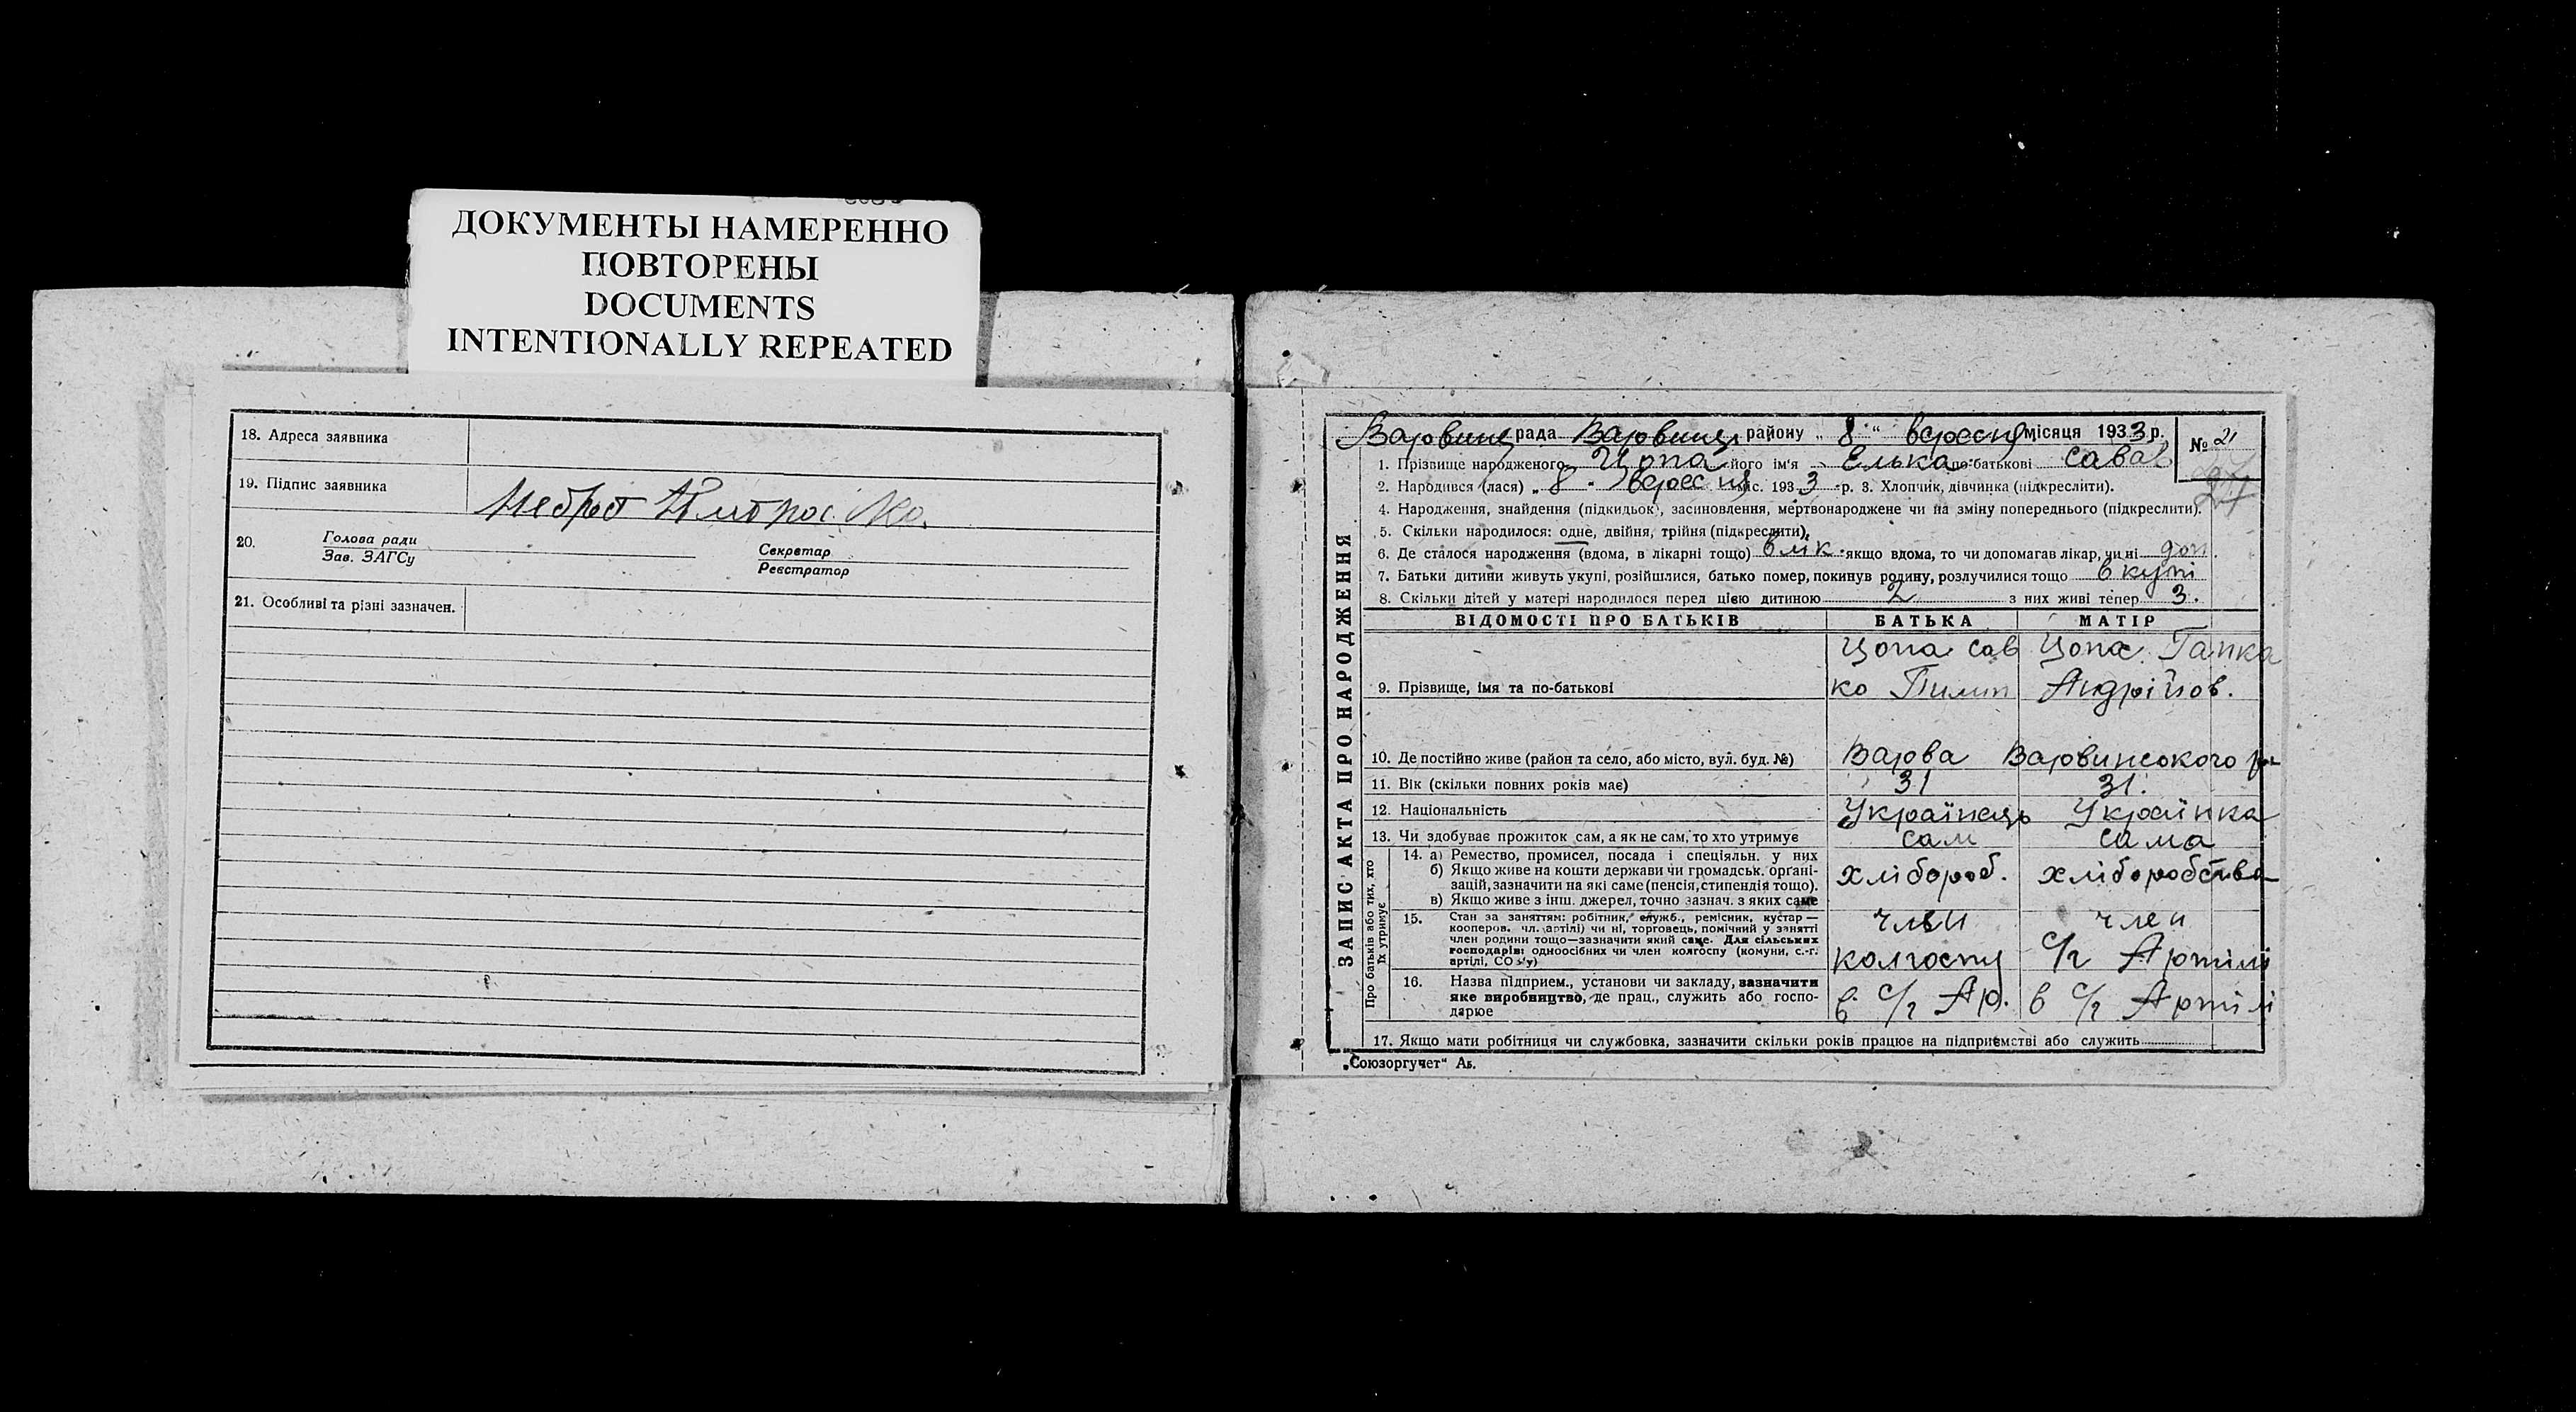 ДОКУМЕНТЫ НАМЕРЕННО
ПОВТОРЕНЫ
DOCUMENTS
INTENTIONALLY REPEATED
18. Адреса заявника
19. Підпис заявника
20. Голова ради
Зав. ЗАГСу
Секретар
Реєстратор
21. Особливі та різні зазначен.
ЗАПИС АКТА ПРО НАРОДЖЕННЯ
Варвинс рада Варвинс району „ 8 “ вересня місяця 1933 р.
№ 21
27
1. Прізвище народженого Цопа його ім'я Елька по-батькові Савов
2. Народився (лася) „ 8 „ Верес ня міс. 193 3 р. 3. Хлопчик, дівчинка (підкреслити).
4. Народження, знайдення (підкидьок), засиновлення, мертвонароджене чи на зміну попереднього (підкреслити).
5. Скільки народилося: одне, двійня, трійня (підкреслити).
6. Де сталося народження (вдома, в лікарні тощо) в лік. якщо вдома, то чи допомагав лікар, чи ні доп.
7. Батьки дитини живуть укупі, розійшлися, батько помер, покинув родину, розлучилися тощо в купі
8. Скільки дітей у матері народилося перед цією дитиною 2 з них живі тепер 3.
ВІДОМОСТІ ПРО БАТЬКІВ БАТЬКА МАТІР
Цопа Сав Цопа Гапка
9. Прізвище, імя та по-батькові ко Пилип Андрійов.
10. Де постійно живе (район та село, або місто, вул. буд. №) Варва Варвинського
11. Вік (скільки повних років має) 31 31.
12. Національність Українець Українка
13. Чи здобуває прожиток сам, а як не сам, то хто утримує сам сама
Про батьків або тих, хто їх утримує
14. а) Ремество, промисел, посада і спеціяльн. у них
б) Якщо живе на кошти держави чи громадськ. органі- хлібороб. хліборобства
зацій, зазначити на які саме (пенсія, стипендія тощо).
в) Якщо живе з інш. джерел, точно зазнач. з яких саме
15. Стан за заняттям: робітник, служб., ремісник, кустар — член член
кооперов. чл. (артілі) чи ні, торговець, помічний у занятті
член родини тощо—зазначити який саме. Для сільських
господарів: одноосібних чи член колгоспу (комуни, с.-г. колгоспу с/г Артілі
артілі, СОЗ'у)
16. Назва підприєм., установи чи закладу, зазначити
яке виробництво, де прац., служить або госпо- в с/г Ар. в с/г Артілі
дарює
17. Якщо мати робітниця чи службовка, зазначити скільки років працює на підприємстві або служить
„Союзоргучет“ Аб.